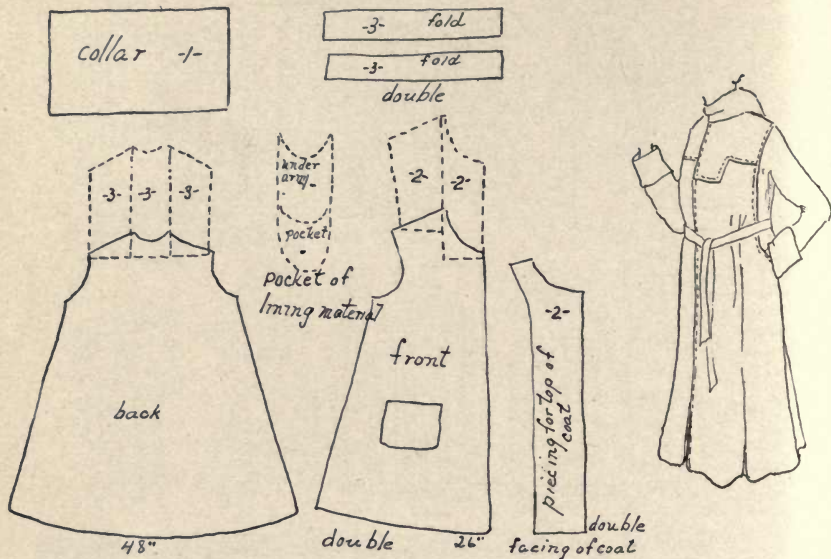 collar -1-
-3- fold
-3- fold
double
-3- -3- -3-
under
arm
pocket
pocket of
lining material
-2- -2-
back
48"
front
double
26"
-2-
piecing for top of
coat
double
facing of coat